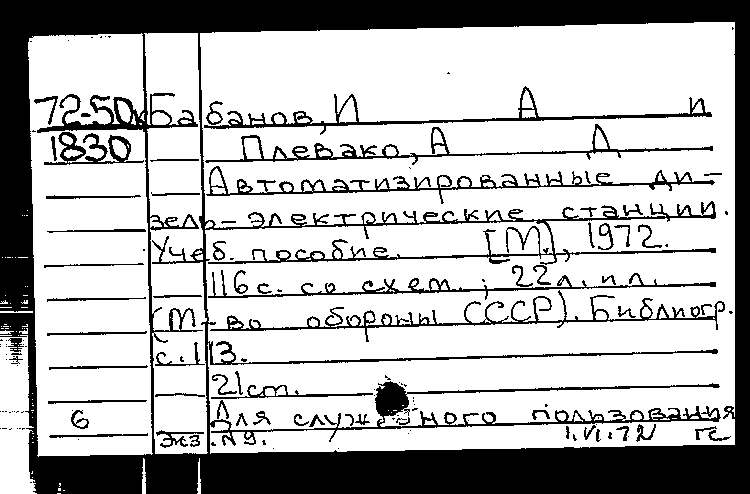 72-50к Бабанов, И А и
1830 Плевако, А Д
Автоматизированные ди-
зель-электрические станции.
Учеб. пособие. [М.], 1972.
116 с. со схем.; 22 л. ил.
(М-во обороны СССР). Библиогр.
с. 113.
21 см.
6 Для служебного пользования
Экз. №9. 1.VI.72 гс